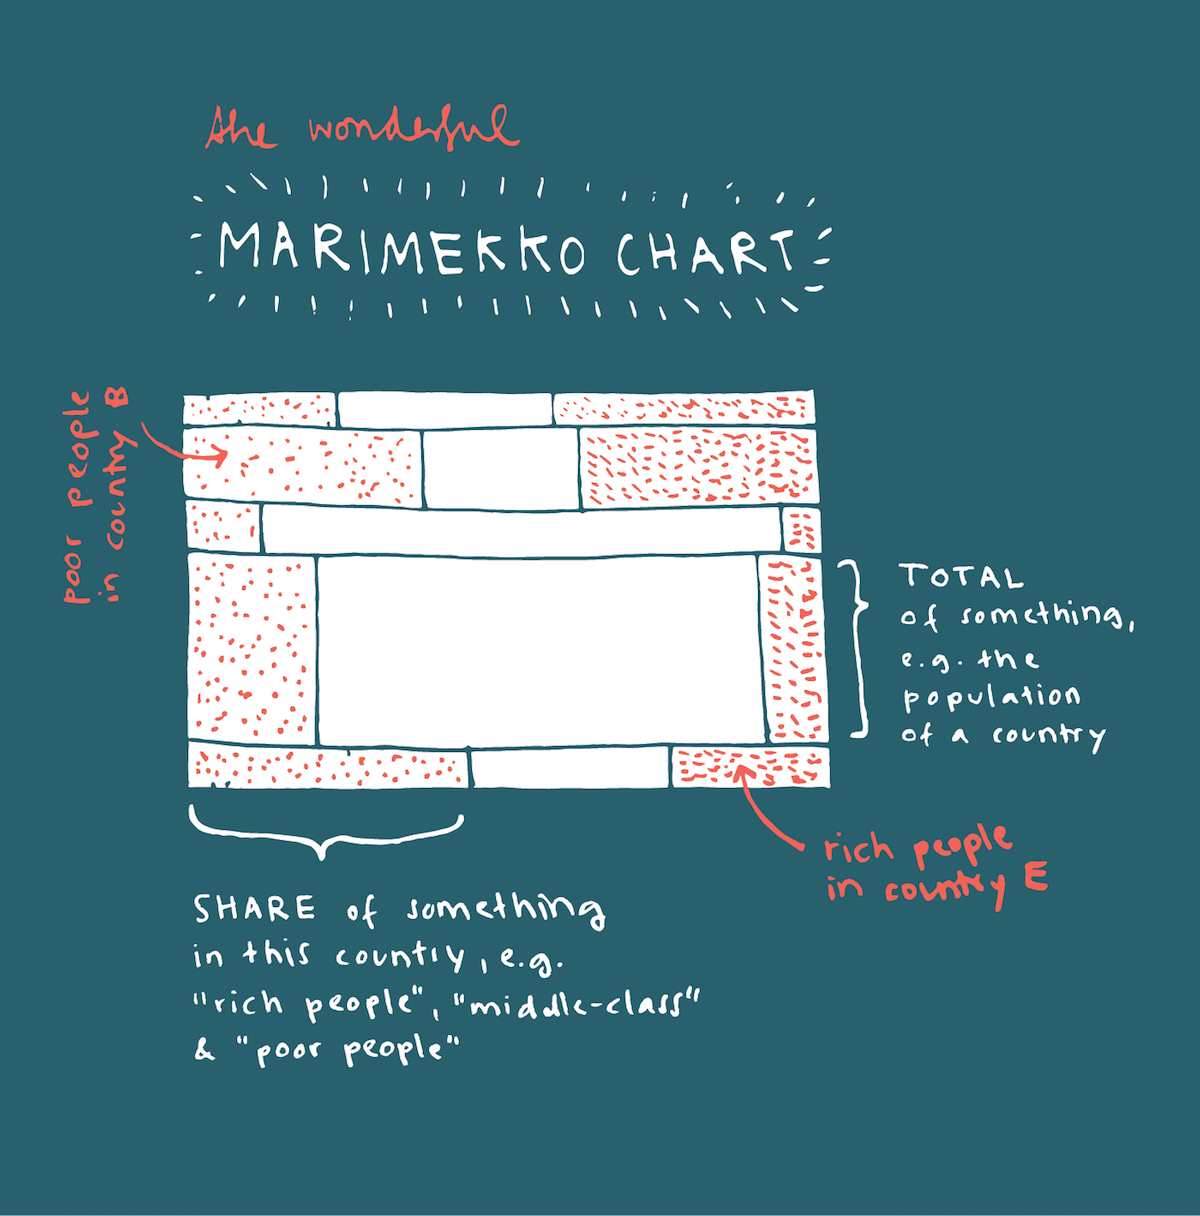 the wonderful
MARIMEKKO CHART
poor people
in country B
TOTAL
of something,
e.g. the
population
of a country
rich people
in country E
SHARE of something
in this country, e.g.
"rich people", "middle-class"
& "poor people"